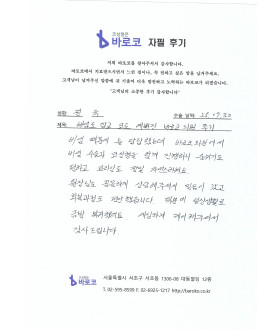 코성형은
바로코 자필 후기
저희 바로코를 찾아주셔서 감사합니다.
바로코에서 치료받으시면서 느낀 점이나, 꼭 전하고 싶은 말을 남겨주세요.
고객님이 남겨주신 말씀에 귀 기울여 더욱 발전하고 노력하는 바로코가 되겠습니다.
"고객님의 소중한 후기 감사합니다"
성함 수술 날짜
제목: 비염도 잡고 코도 예뻐진 바로코 자필 후기
비염 때문에 늘 답답했는데 바로코의원에서
비염 수술과 코성형을 함께 진행하니 숨쉬기도
편하고 코라인도 정말 자연스러워요
원장님도 꼼꼼하게 상담해주셔서 믿음이 갔고
회복과정도 편안했습니다. 덕분에 일상생활로
금방 복귀했어요 세심하게 케어해주셔서
감사드립니다.
코성형은
바로코
서울특별시 서초구 서초동 1306-06 대동빌딩 12층
T. 02-595-8509 F. 02-6925-1217 http://baroko.co.kr